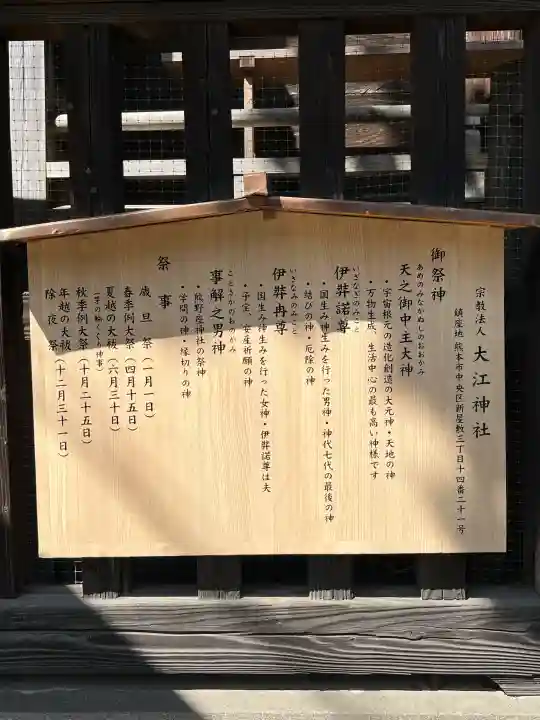 宗教法人 大江神社
鎮座地 熊本市中央区新屋敷三丁目十四番二十一号
御祭神
あめのみなかぬしのおおかみ
天之御中主大神
・宇宙根元の造化創造の大元神・天地の神
・万物生成、生活中心の最も高い神様です
いざなぎのみこと
伊弉諾尊
・国生み神生みを行った男神・神代七代の最後の神
・結びの神・厄除の神
いさなみのみこと
伊弉冉尊
・国生み神生みを行った女神・伊弉諾尊は夫
・子宝、安産祈願の神
ことさかのおのかみ
事解之男神
・熊野座神社の祭神
・学問の神・縁切りの神
祭事
歳旦祭(一月一日)
春季例大祭(四月十五日)
夏越の大祓(六月三十日)
(茅の輪くぐり神事)
秋季例大祭(十月二十五日)
年越の大祓(十二月三十一日)
除夜祭